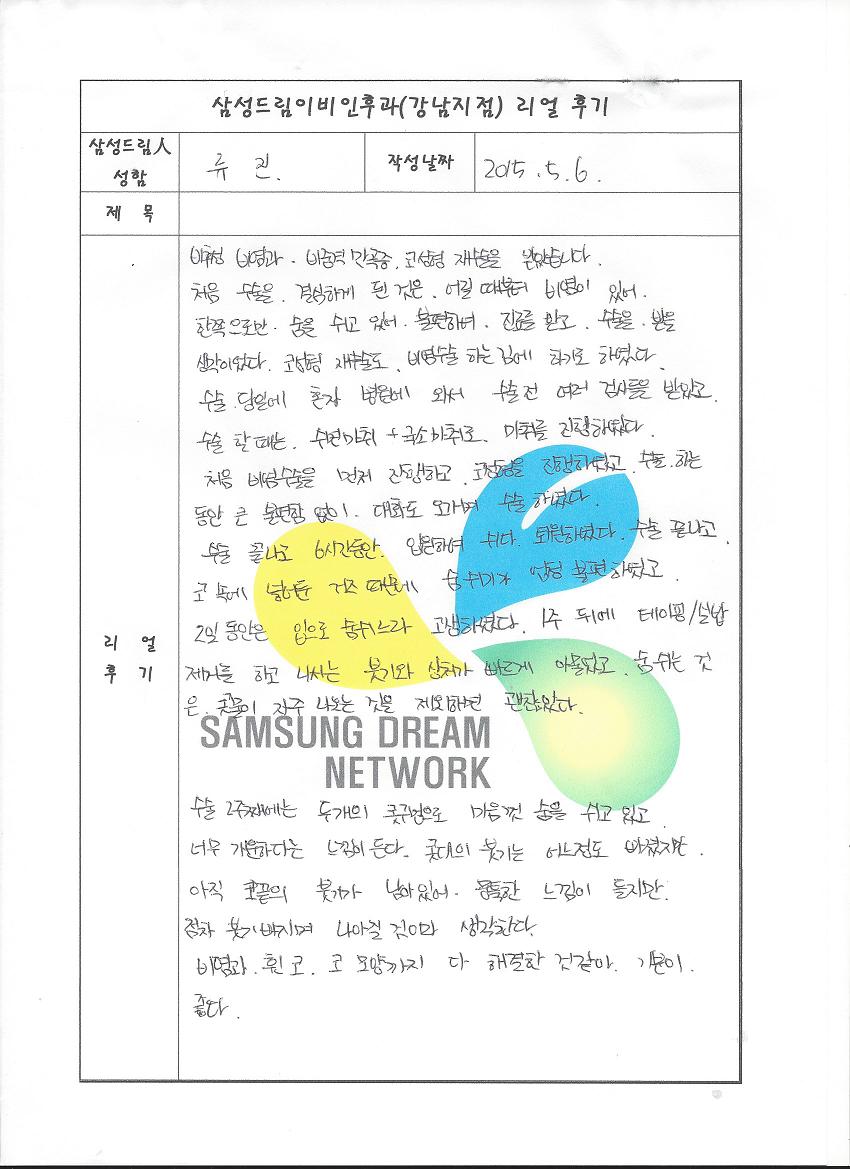 삼성드림이비인후과(강남지점) 리얼 후기
삼성드림人
성함
류 진.
작성날짜
2015.5.6.
제 목
리 얼
후 기
비후성 비염과. 비중격 만곡증, 코성형 재수술을 받았습니다.
처음 수술을. 결심하게 된 것은. 어릴 때부터 비염이 있어.
한쪽으로만. 숨을 쉬고 있어. 불편하여. 진료를 받고. 수술을. 받을
생각이었다. 코성형 재수술도. 비염수술 하는김에 하기로 하였다.
수술 당일에 혼자 병원에 와서 수술전 여러 검사들을 받았고.
수술 할때는. 수면마취 + 국소마취로. 마취를 진행하였다.
처음 비염수술을 먼저 진행하고. 코성형을 진행하였고. 수술. 하는
동안 큰 불편함 없이. 대화도 오가며 수술 하였다.
수술 끝나고 6시간동안. 입원하여 쉬다. 퇴원하였다. 수술 끝나고.
코 속에 넣어둔 거즈 때문에 숨쉬기가 엄청 불편하였고.
2일 동안은 입으로 숨쉬느라 고생하였다. 1주 뒤에 테이핑/실밥
제거를 하고 나서는 붓기와 상처가 빠르게 아물었고. 숨쉬는 것
은. 콧물이 자주 나오는 것을 제외하면 괜찮았다.
SAMSUNG DREAM
NETWORK
수술 2주째에는 두개의 콧구멍으로 마음껏 숨을 쉬고 있고
너무 개운하다는 느낌이 든다. 콧대의 붓기는 어느정도 빠졌지만.
아직 코끝의 붓기가 남아있어. 뭉툭한 느낌이 들지만.
점차 붓기 빠지며 나아질 것이라 생각한다.
비염과. 휜 코. 코 모양까지 다 해결한 것같아. 기분이.
좋다.